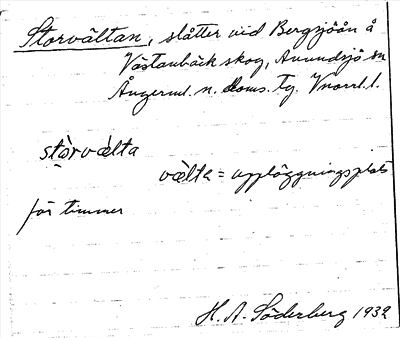 Storvältan, slåtter vid Bergsjöån å
Västanbäck skog, Anundsjö sn
Ångerml. n. doms. tg. Vnorrl. l.
stòrvæ̀lta
væ̀lta = uppläggningsplats
för timmer
H. A. Söderberg 1932